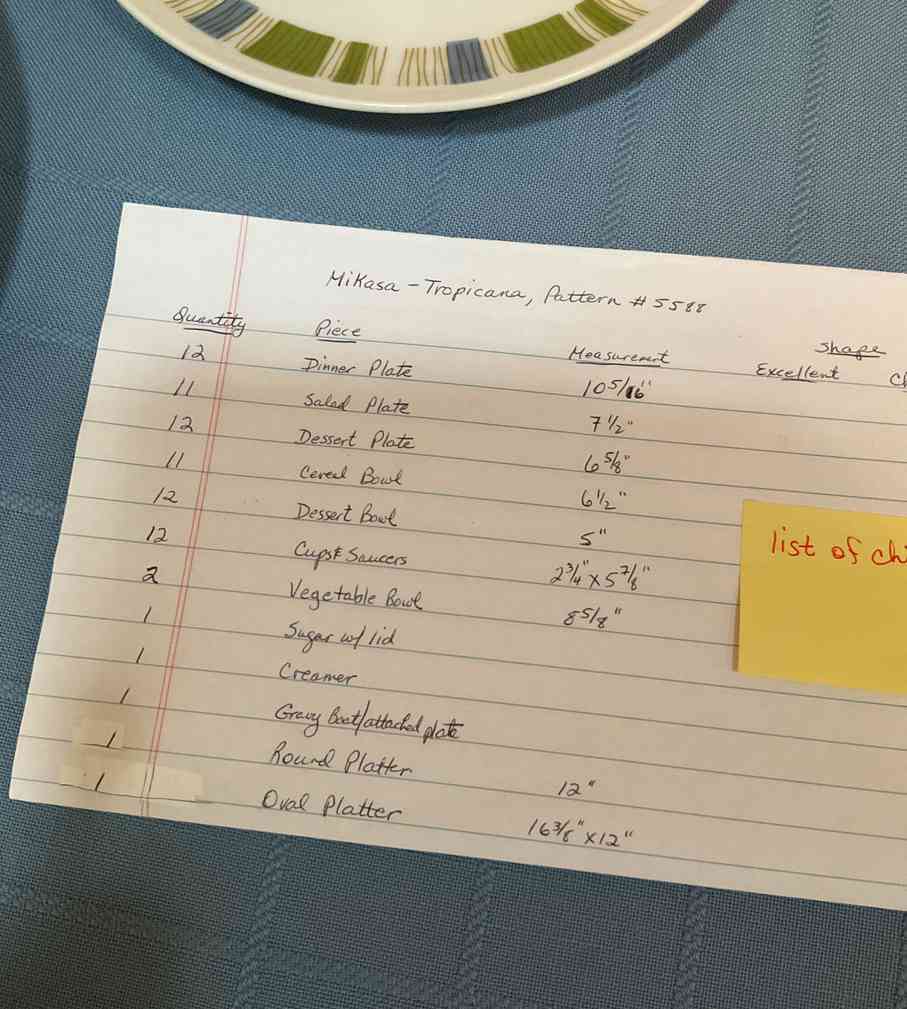 Mikasa - Tropicana, Pattern # 5588
Quantity Piece Measurement Shape
Excellent
12 Dinner Plate 10 5/16"
11 Salad Plate 7 1/2"
12 Dessert Plate 6 5/8"
11 Cereal Bowl 6 1/2"
12 Dessert Bowl 5"
12 Cups & Saucers 2 3/4" x 5 7/8"
2 Vegetable Bowl 8 5/8"
1 Sugar w/ lid
1 Creamer
1 Gravy Boat/attached plate
1 Round Platter 12"
1 Oval Platter 16 3/8" x 12"
list of